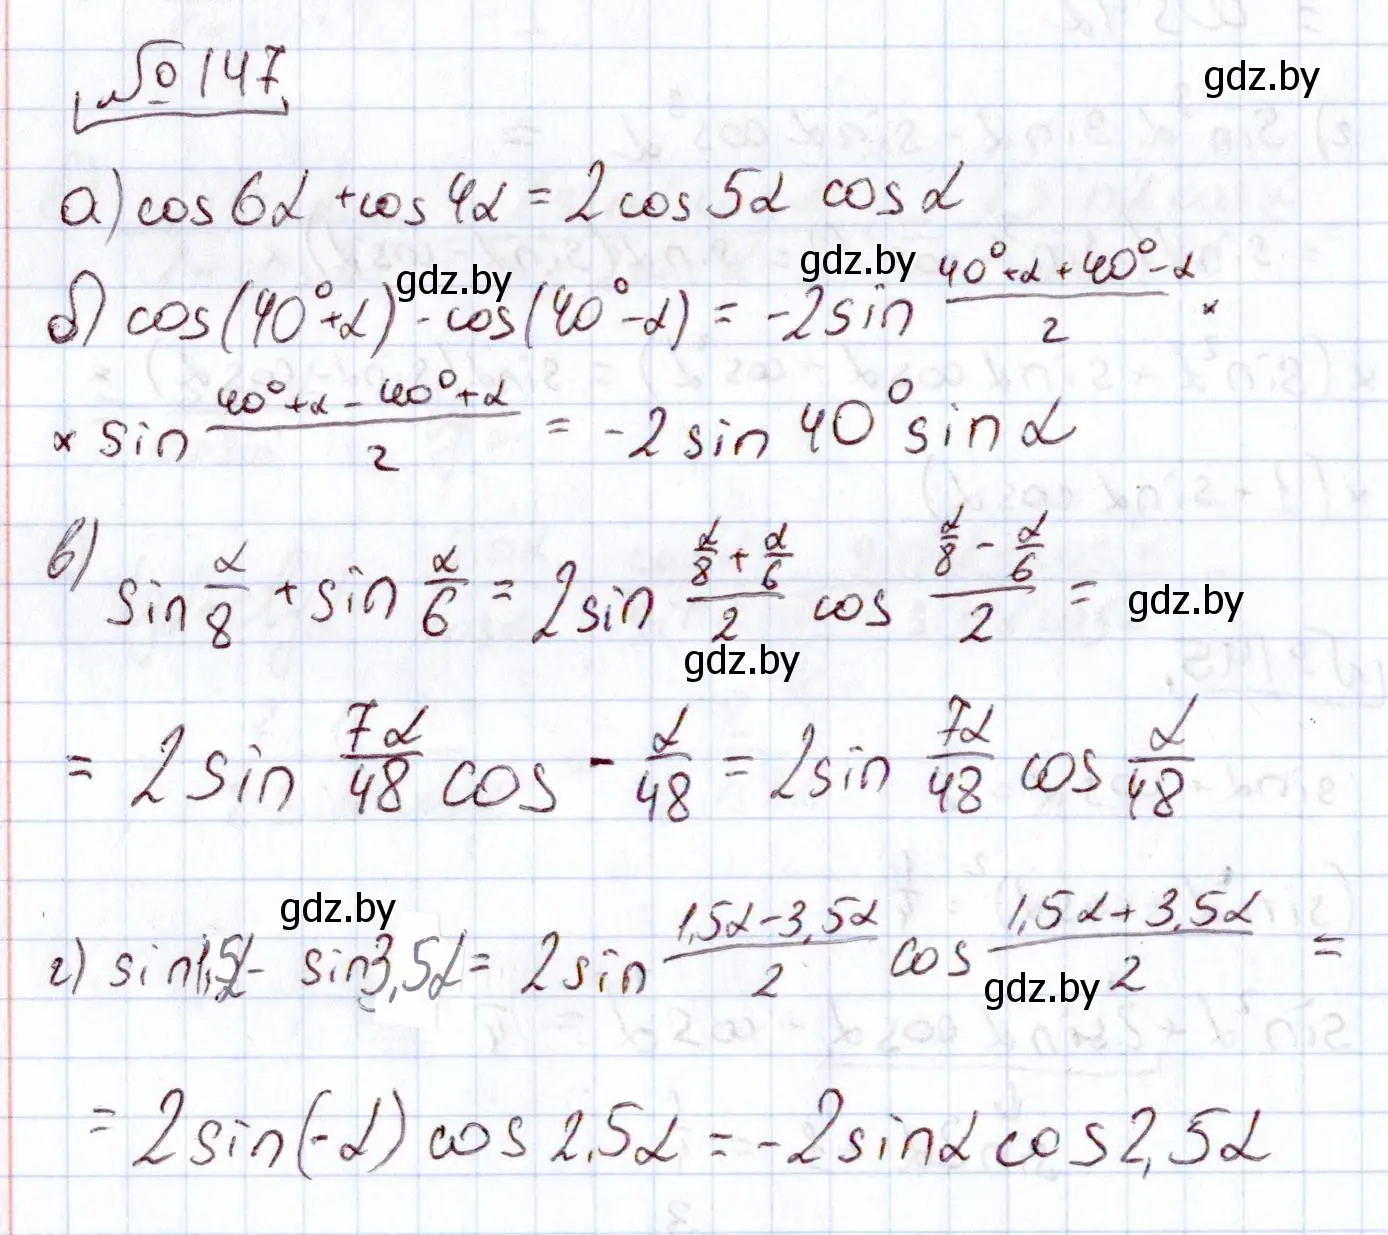 №147
gdz.by
а) cos 6α + cos 4α = 2 cos 5α cos α
gdz.by gdz.by
б) cos(40° + α) - cos(40° - α) = -2 sin (40° + α + 40° - α)/2 ×
× sin (40° + α - 40° + α)/2 = -2 sin 40° sin α
в) sin α/8 + sin α/6 = 2 sin (α/8 + α/6)/2 cos (α/8 - α/6)/2 =
gdz.by
gdz.by
= 2 sin 7α/48 cos - α/48 = 2 sin 7α/48 cos α/48
gdz.by
г) sin 1,5α - sin 3,5α = 2 sin (1,5α - 3,5α)/2 cos (1,5α + 3,5α)/2 =
gdz.by
= 2 sin(-α) cos 2,5α = -2 sin α cos 2,5α